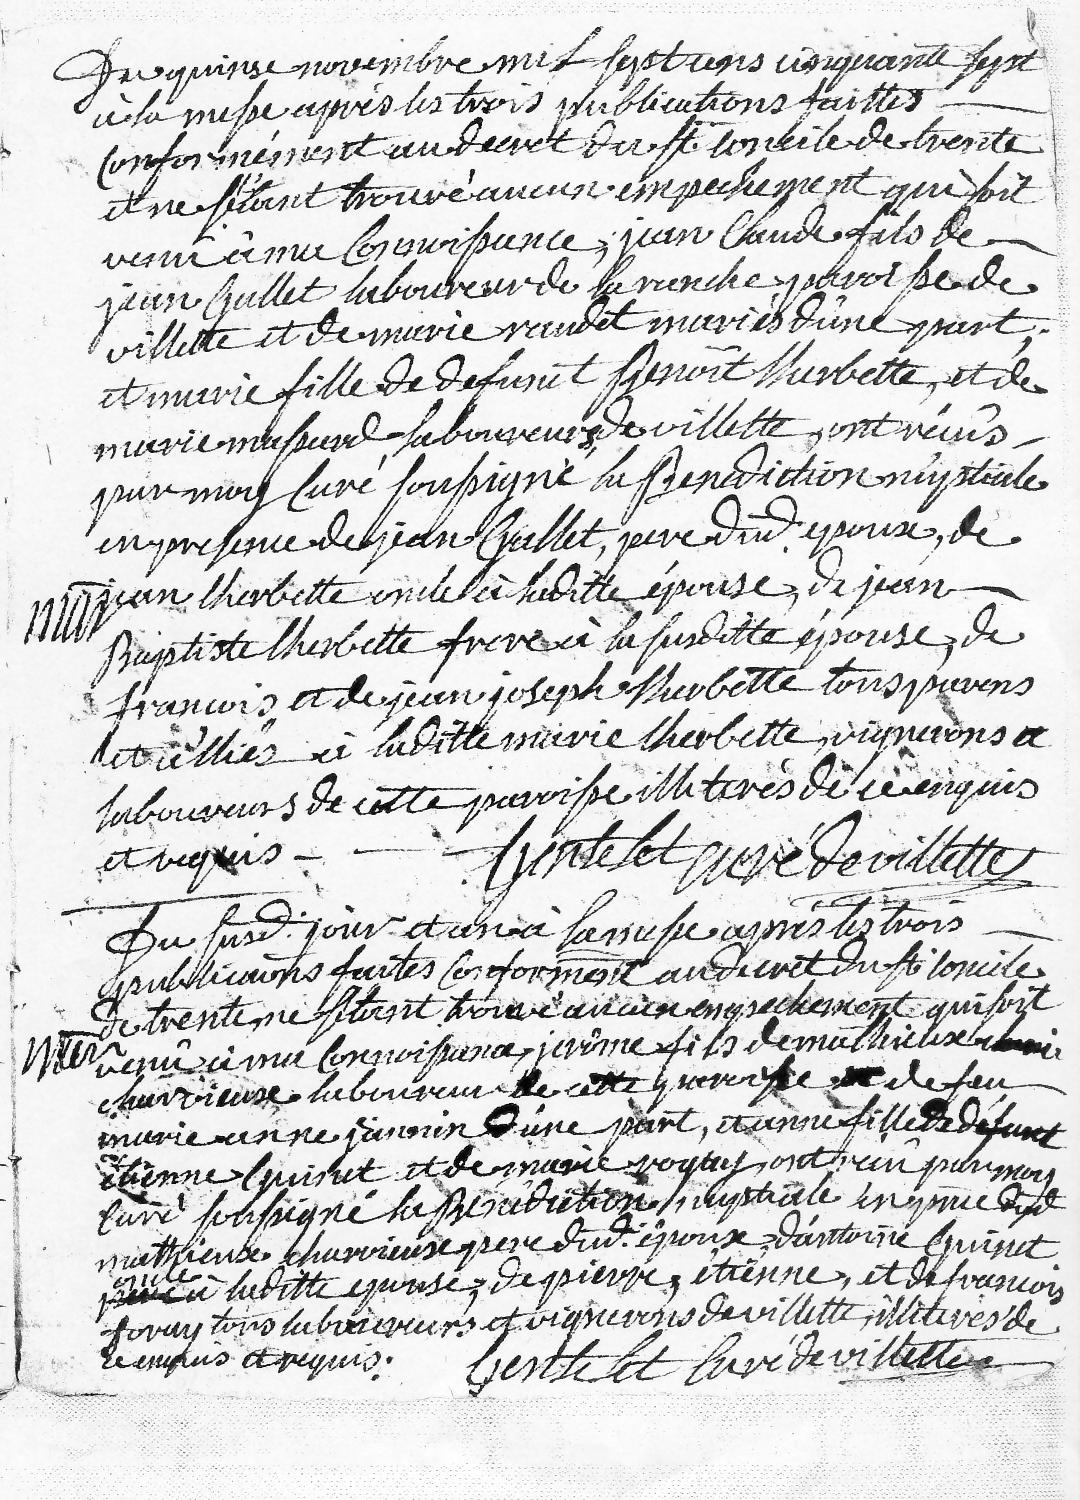 Du quinse novembre mil sept cens cinquante sept
à la messe après les trois publications faittes
conformément au decret du st. concile de trente
et ne s'étant trouvé aucun empechement qui soit
venû à ma connoissance, jean Claude fils de
jean Gullet laboureur de la ranche paroisse de
villette et de marie raudet mariés d'une part,
et marie fille de defunt Benoît lherbette, et de
marie massard laboureurs de villette, ont reûs
par moy Curé soussigné la Benediction nuptiale
en presence de jean Gullet, pere dud. epoux, de
mar jean lherbette oncle à laditte épouse, de jean
Baptiste lherbette frere à la susditte épouse, de
francois et de jean joseph lherbette tous parens
et alliés à laditte marie lherbette, vignerons et
laboureurs de cette paroisse illiterés de ce enquis
et requis Gentelet curé de villette
Du susd. jour et an à la messe après les trois
publications faites conformént au decret du st. concile
de trente, ne s'étant trouvé aucun empechement qui soit
venû à ma connoissance, jerôme fils de mathieux
charvieux laboureur de cette paroisse de feu
marie anne jannin d'une part, et anne fille de défunt
étienne Guinet et de marie rogay, ont reûû par moy
Curé soussigné la Bénédiction nuptiale en pnce dud
mathieux charvieux pere dud. époux, d'antoine Guinet
oncle à laditte epouse, de pierre, étiénne, et de francois
foray tous laboureurs et vignerons de villette, illiterés de
ce enquis et requis. Gentelet Curé de villette